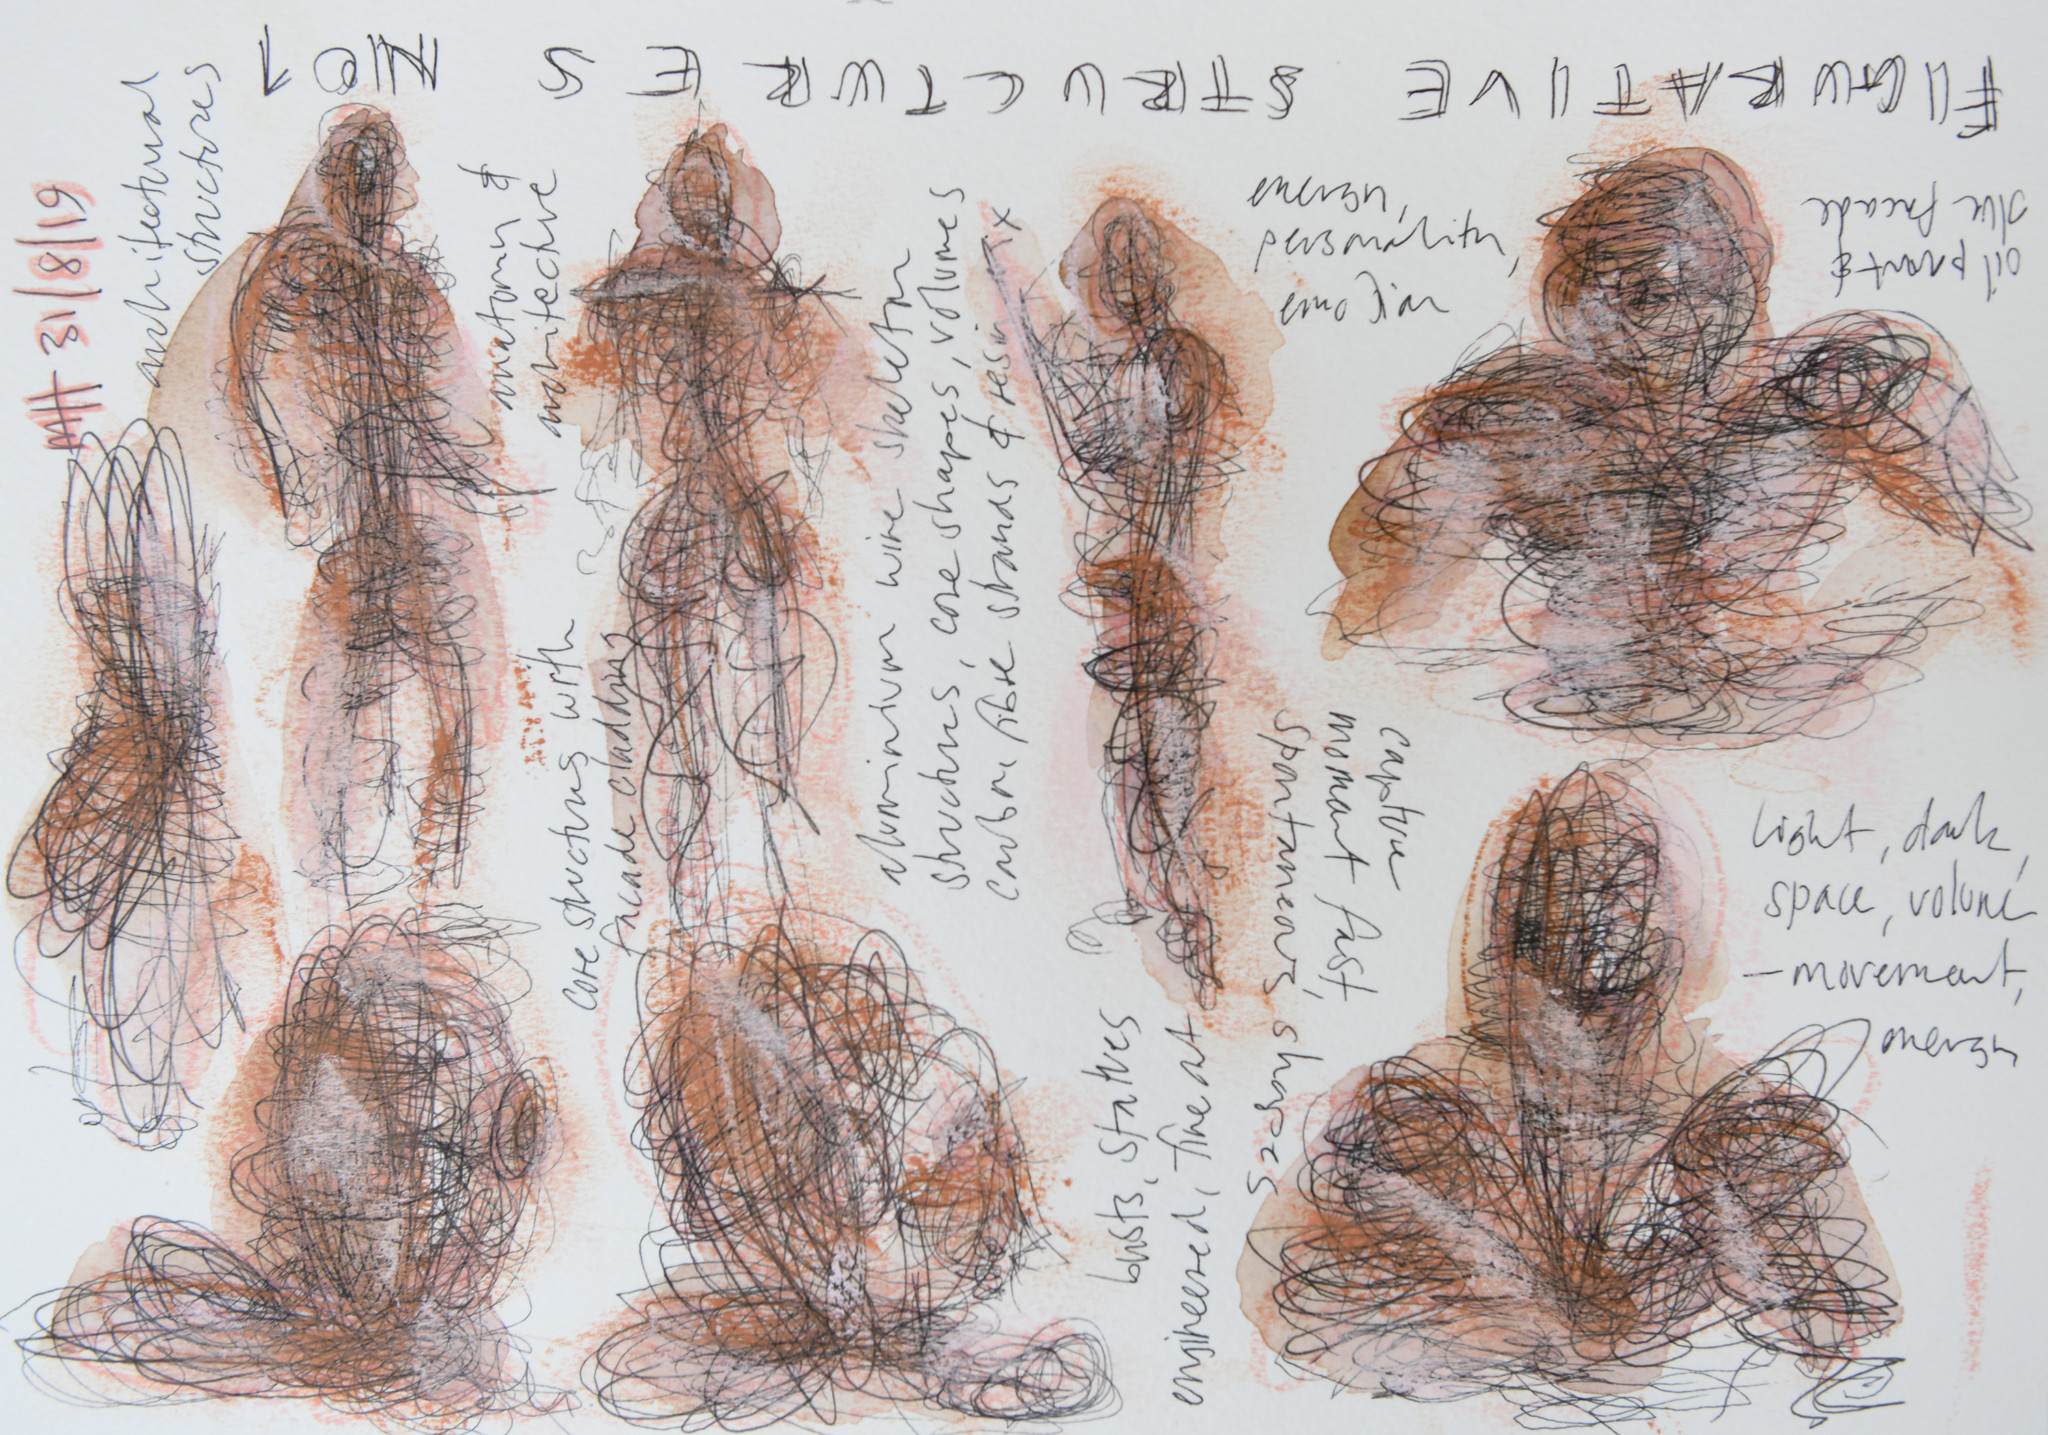 FIGURATIVE STRUCTURES NO1
MH 31/8/19
architectural
structures
anatomy &
architecture
core structures with
facade cladding
aluminium wire skeleton
structures, core shapes, volumes
carbon fibre strands & resin
energy,
personality,
emotion
oil paint &
glue facade
capture
moment fast,
spontaneous
busts, statues
engineered, fine art
light, dark,
space, volume
- movement,
energy